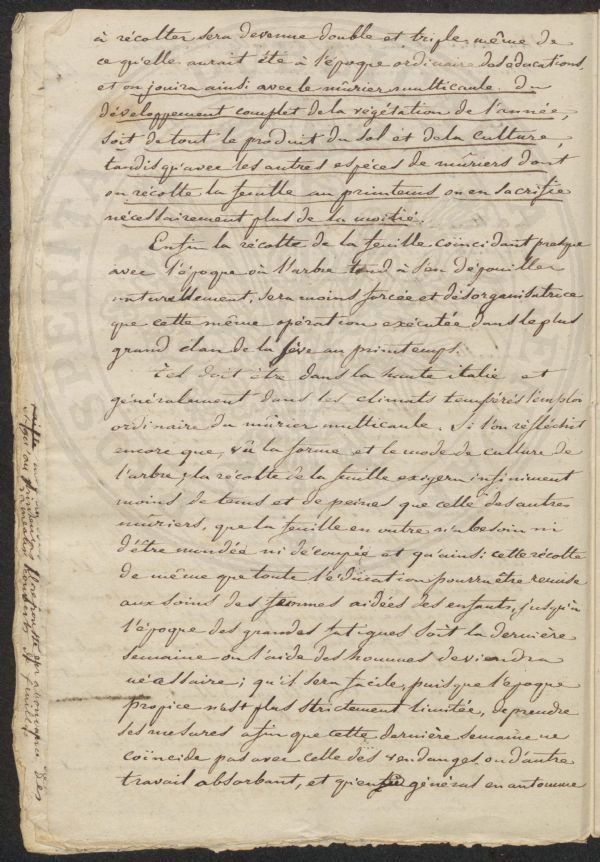 à récolter sera devenue double et triple même de
ce qu'elle aurait été à l'époque ordinaire des éducations,
et on jouira ainsi avec le mûrier multicaule. Du
développement complet de la végétation de l'année,
soit de tout le produit du sol et de la culture,
tandis qu'avec les autres espèces de mûriers dont
on récolte la feuille au printems on en sacrifie
nécessairement plus de la moitié.
Enfin la récolte de la feuille coïncidant presque
avec l'époque où l'arbre tend à s'en dépouiller
naturellement, sera moins forcée et désorganisatrice
que cette même opération exécutée dans le plus
grand élan de la sève au printemps.
Tel doit être dans la haute italie et
généralement dans les climats tempérés l'emploi
ordinaire du mûrier multicaule. Si l'on réfléchit
encore que, vû la forme et le mode de culture de
l'arbre, la récolte de la feuille exigera infiniment
moins de tems et de peines que celle des autres
mûriers, que la feuille en outre n'a besoin ni
d'être mondée ni découpée et qu'ainsi cette récolte
de même que toute l'éducation pourra être remise
aux soins des femmes aidées des enfants, jusqu'à
l'époque des grandes fatigues soit la dernière
semaine où l'aide des hommes deviendra
nécessaire ; qu'il sera facile, puisque l'époque
propice n'est plus strictement limitée, de prendre
ses mesures afin que cette dernière semaine ne
coïncide pas avec celle des vendanges ou d'autre
travail absorbant, et qu'en général en automne